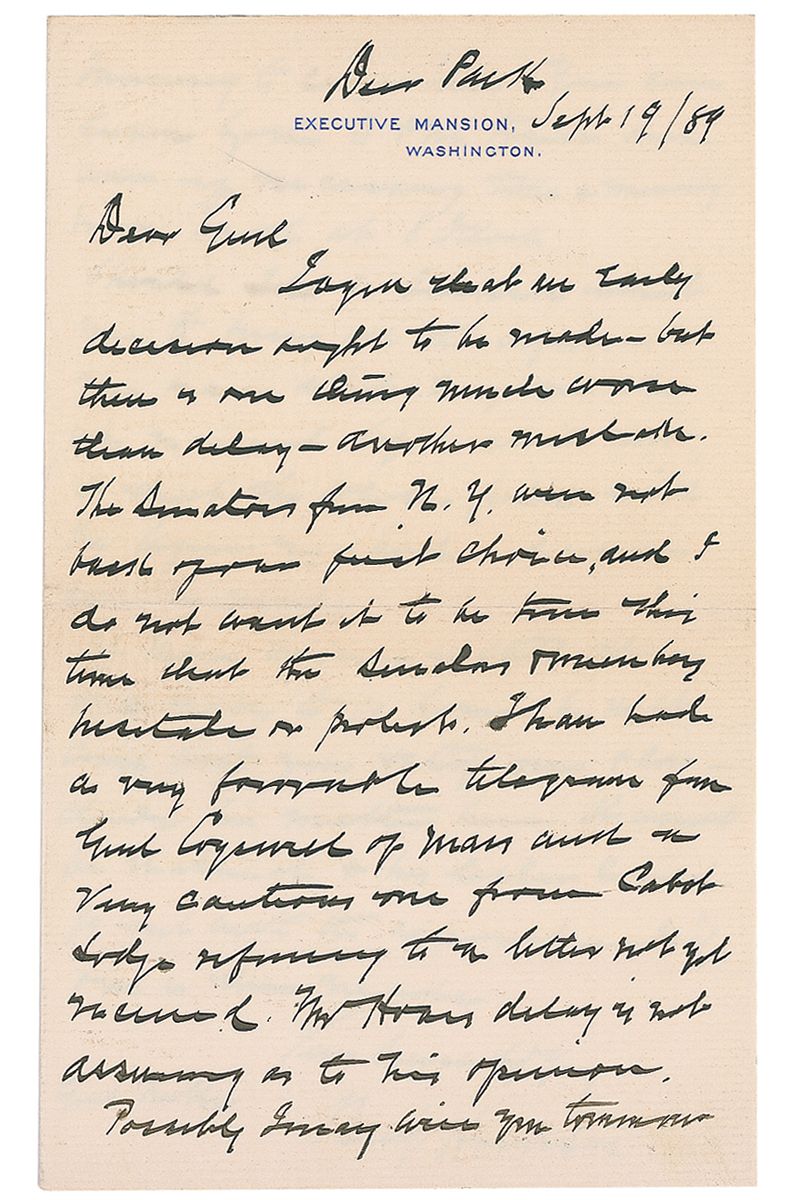 Deer Park
EXECUTIVE MANSION, Sept 19/89
WASHINGTON.
Dear Genl
I agree that an early
decision ought to be made – but
there is one thing much worse
than delay – another mistake.
The Senators from N. Y. were not
back of our first choice, and I
do not want it to be true this
time that the Senators & members
hesitate or protest. I have had
a very favorable telegram from
Genl Cogswell of Mass and a
very cautious one from Cabot
Lodge referring to a letter not yet
received. Mr Hoars delay is not
assuring as to his opinion.
Possibly I may wire you tomorrow